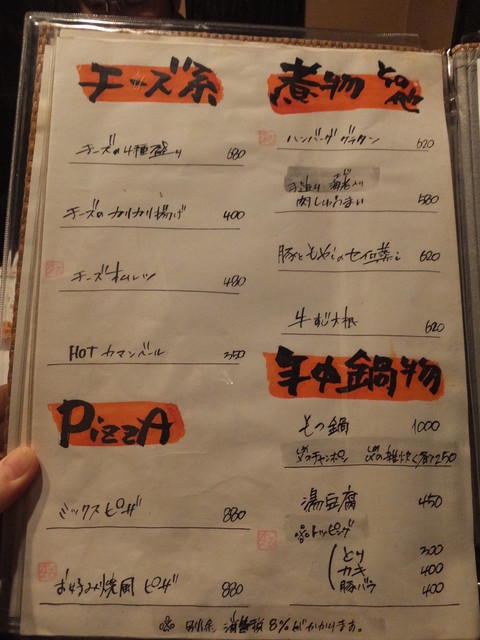 チーズ系
チーズの4種盛り 680
チーズのカリカリ揚げ 400
チーズオムレツ 480
HOTカマンベール 350
PizzA
ミックスピザ 880
お好み焼風ピザ 880
煮物 その他
ハンバーググラタン 620
手造り 海老入り
肉しゅうまい 580
豚ともやしのセイロ蒸し 620
牛すじ大根 620
年中鍋物
もつ鍋 1000
〆のチャンポン 〆の雑炊 各250
湯豆腐 450
※トッピング
とり 300
カキ 400
豚バラ 400
※ 別途 消費税 8%がかかります。